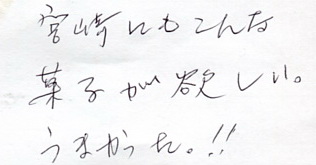 宮崎にもこんな
菓子が欲しい。
うまかった。!!